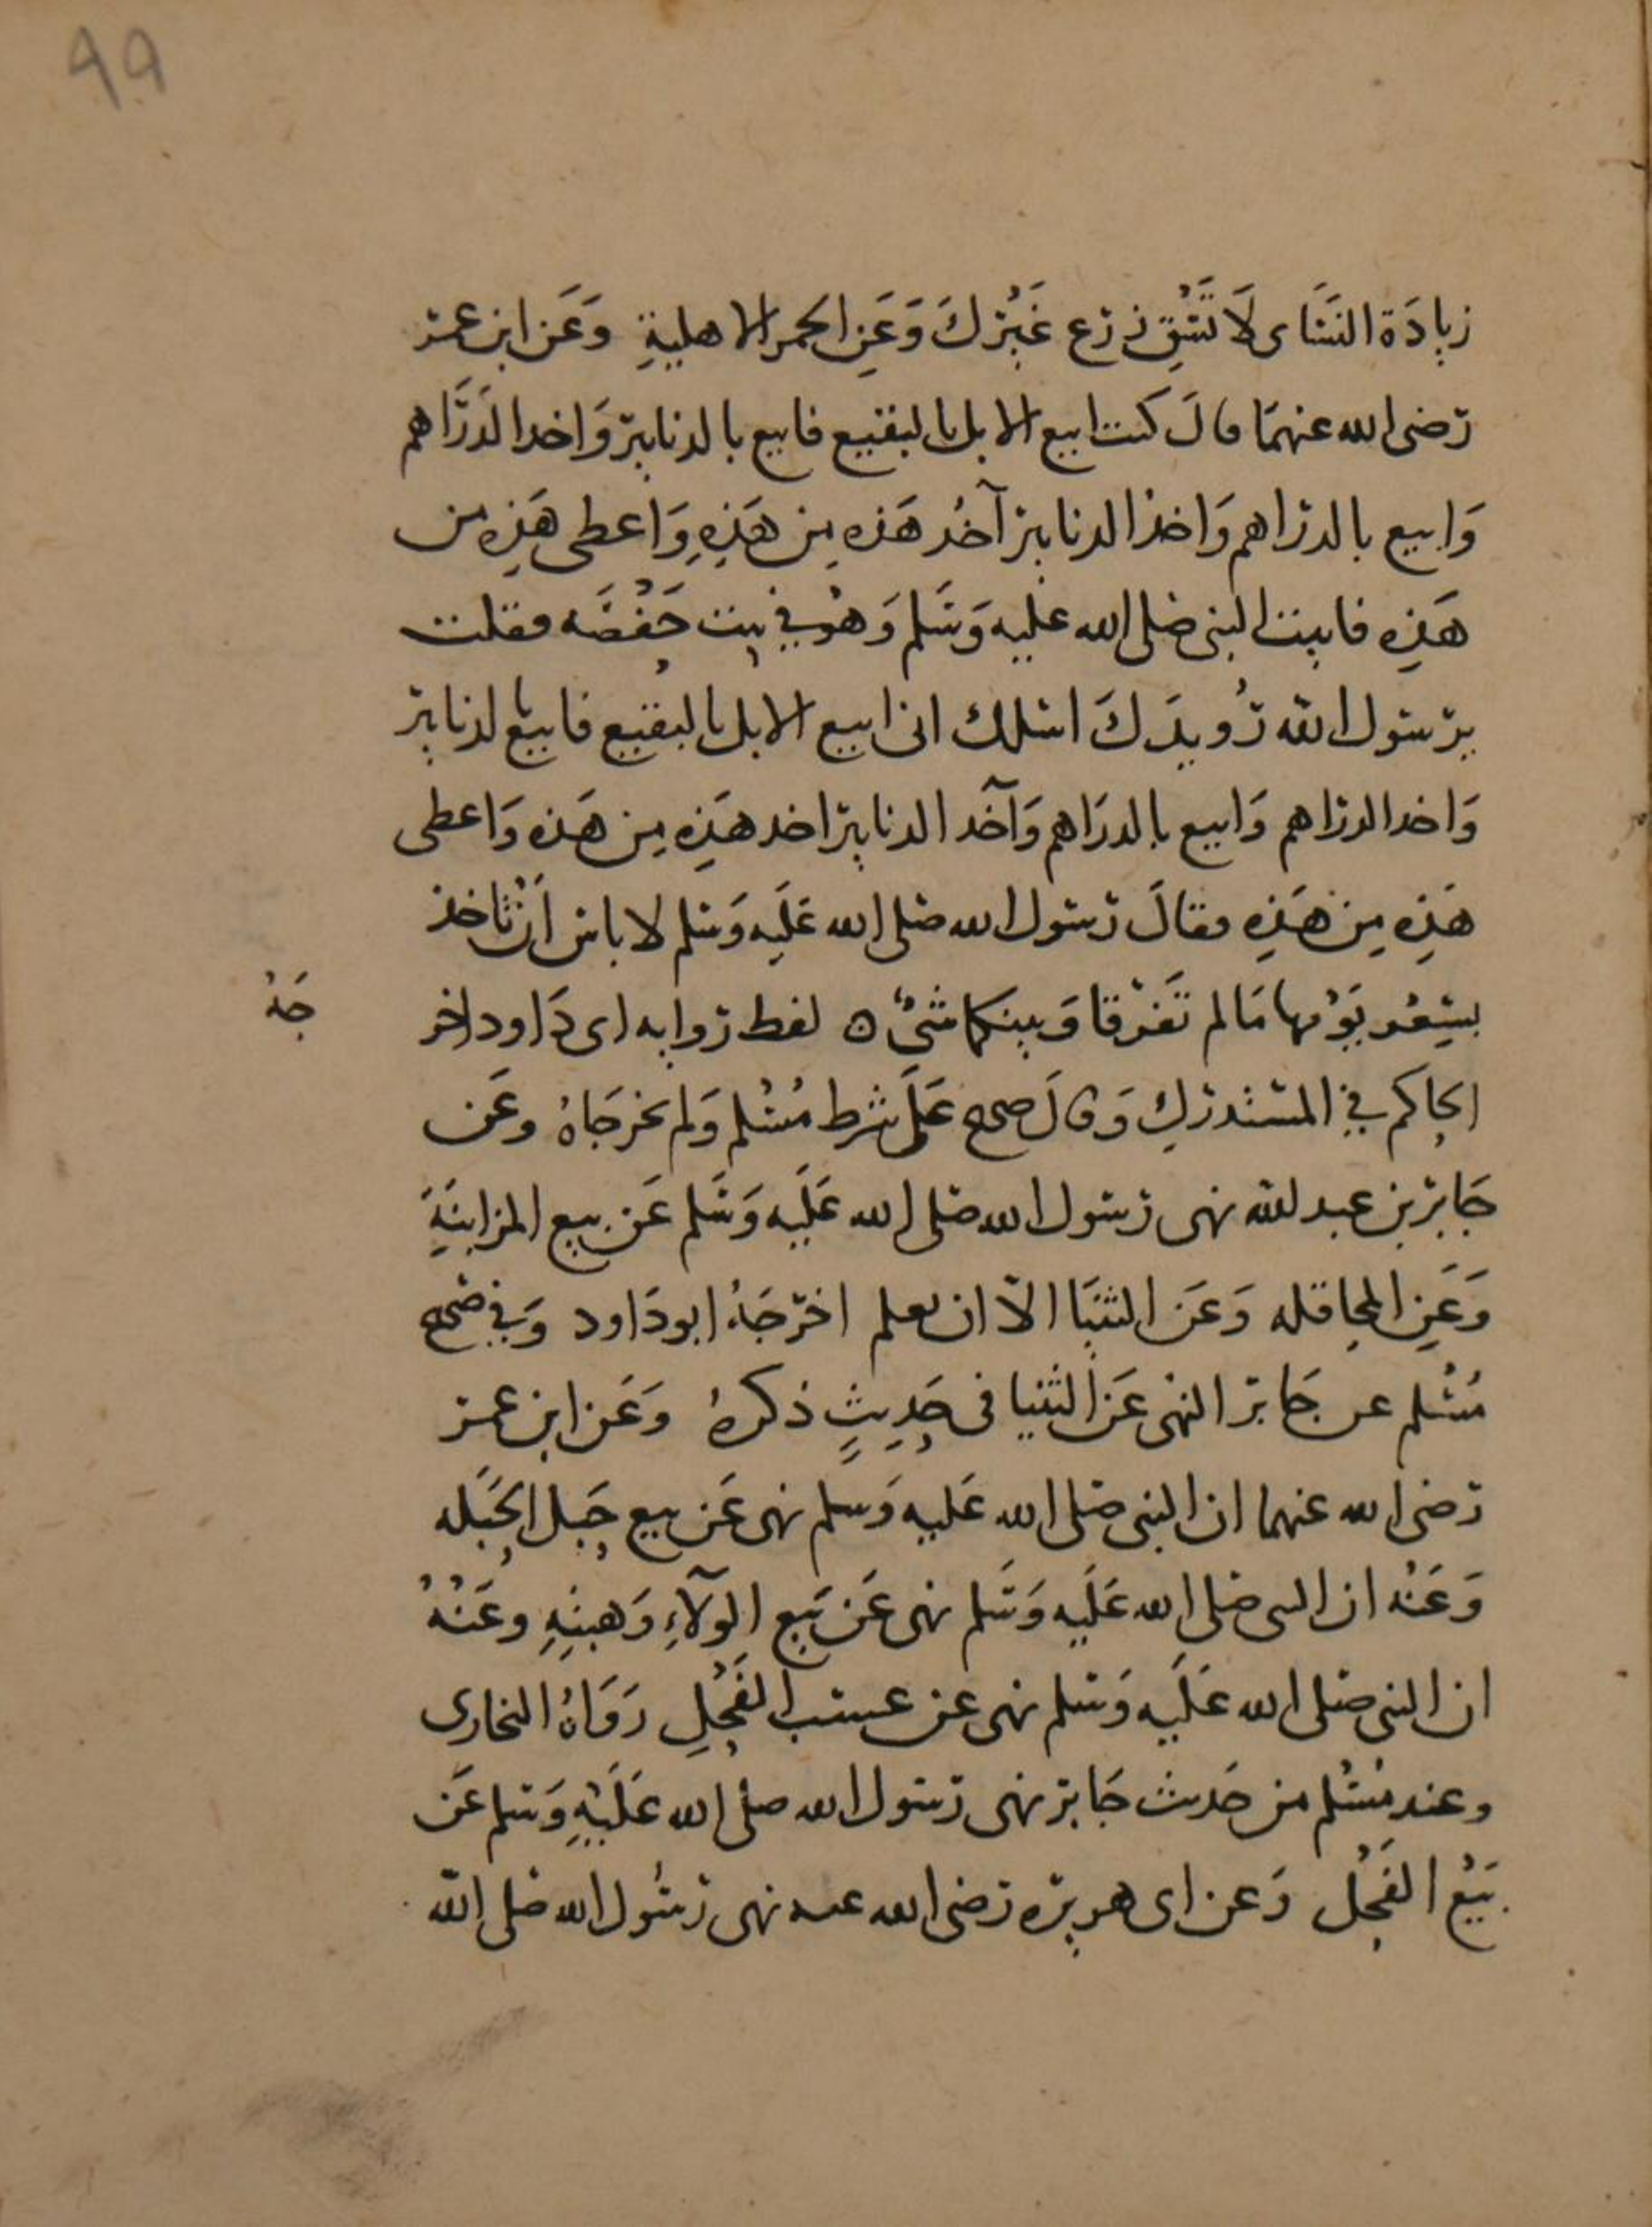 ٩٩
زيادَة النسَاى لَا تَسْقِ زرع غَيْرك وَعَنِ الحمر الاهليةِ وَعَن ابن عمر
رضى الله عنهمَا قالَ كنت ابيع الابل بالبقيع فابيع بالدنانير وَاخد الدَرَاهم
وَابيع بالدراهم وَاخذ الدنانير آخُد هَذه مِن هَذِهِ وَاعطى هَذِه من
هَذِه فاتيت النبى صلى الله عليه وَسَلم وَهُو فِي بيت حَفْصَه فقلت
يرسول الله رُويدَكَ اسلك انى ابيع الابل بالبقيع فابيع بالدنانير
وَاخد الدراهم وَابيع بالدرَاهم وَآخد الدنانير اخد هَذِه مِن هَذه وَاعطى
هَذِه مِن هَذِه فقالَ رسول الله صلى الله عَلَيه وَسلم لا باس اَنْ تاخذ
بسِعْر يَوْمها مَا لم تَفْرقا وَبينكما شىْءٌ ه لفظ روايه ابى دَاود اخر
جَهُ
الحاكم فِي المستدركِ وَقالَ صحح عَلَى شرط مُسْلم وَلم يخرجَاهُ وعَن
جَابر بن عبد الله نهى رسول الله صلى الله عَلَيه وَسَلم عَن بيع المزابنَةِ
وَعَنِ المحاقله وَعَن الثنيَا الاّ ان يعلم اخرَجَهُ ابو دَاود وَفِي صحح
مُسْلم عن جَابر النهى عَن الثنيا فى حَدِيثٍ ذكرهُ وَعَن ابن عمر
رضى الله عنهما ان النبى صلى الله عَليه وَسلم نهى عَن بيع حَبل الحَبَله
وَعَنْه ان النبى صلى الله عَلَيه وَسَلم نهى عَن بَيع الوَلآءِ وَهبتِهِ وعَنْهُ
ان النبى صلى الله عَلَيه وَسلم نهى عن عسب الفَحْلِ رَوَاهُ البخارى
وعند مُسْلم من حَديث جَابر نهى رسول الله صلى الله عَلَيْهِ وَسلم عَن
بَيْع الفَحْل وَعن ابى هريره رضى الله عنه نهى رسُول الله صلى الله